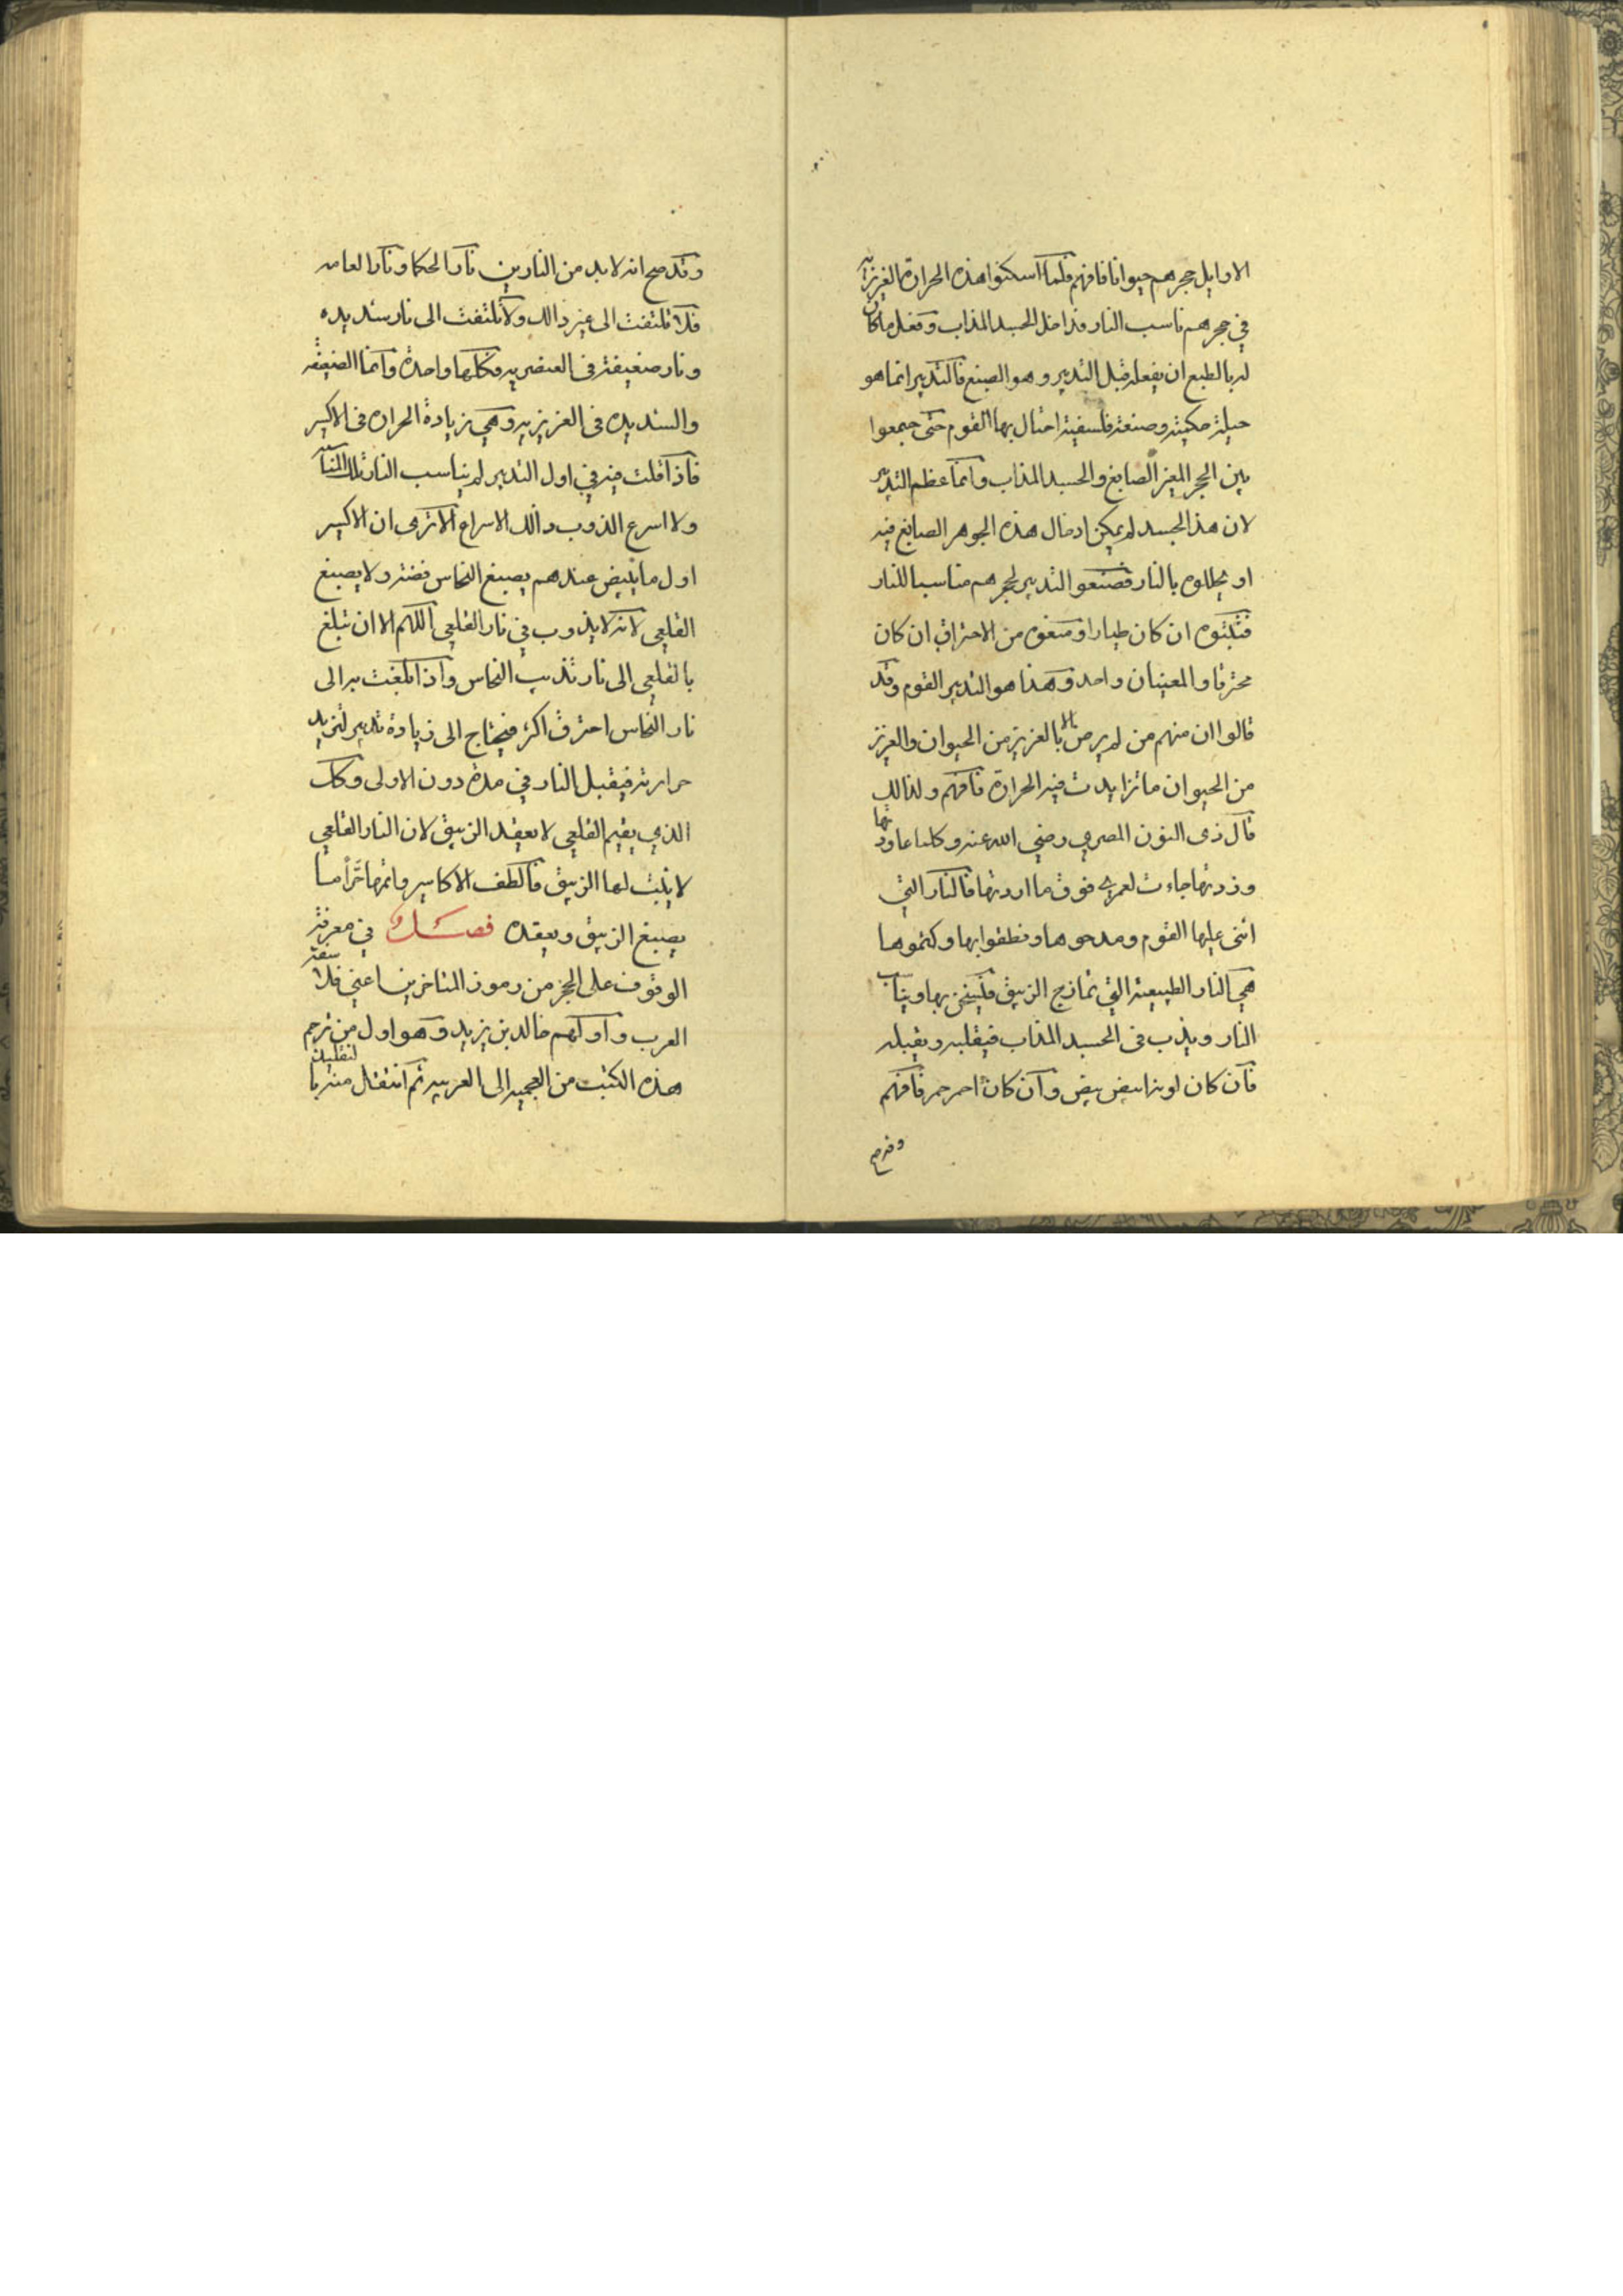 الاوايل حجرهم حيوانا فافهم فلما اسكنوا هذه الحرارة الغريزيه
في حجرهم ناسب النار فداخل الجسد المذاب وفعل ما كان
له بالطبع ان يفعله قبل التدبير وهو الصبغ فالتدبير انما هو
حيلة حكمية وصنعة فلسفية احتال بها القوم حتى جمعوا
بين الحجر الصابغ والجسد المذاب وانما عظم التدبير
لان هذا الجسد لم يمكن ادخال هذه الجوهر الصابغ فيه
او يحللوه بالنار فصنعوا التدبير لحجرهم مناسبا للنار
فثبتوه ان كان طيارا او منعوه من الاحتراق ان كان
محترقا والمعنيان واحد وهذا هو التدبير القوم وقد
قالوا ان منهم من لم يرض الا بالعزيز من الحيوان والعزيز
من الحيوان ما تزايدت فيه الحرارة فافهم ولذالك
قال ذى النون المصري رضي الله عنه وكلما عاودتها
وزدتها جاءت لعمري فوق ما اردتها فالنار التي
اثنى عليها القوم ومدحوها ونطقوا بها وكتموها
هي النار الطبيعية التي تمازج الزيبق فيسخن بها ويناسب
النار ويذب فى الجسد المذاب فيقلبه ويقبله
فان كان لونه ابيض بيض وان كان احمر حمر فافهم
وقد صح
وقد صح انه لا بد من النارين نار الحكما ونار العامه
فلا تلتفت الى غير ذالك ولا تلتفت الى نار شديده
ونار ضعيفة فى العنصريه فكلها واحدة وانما الضعيفه
والشديده فى الغريزيه وهي زيادة الحراره فى الاكسير
فاذا قلت فيه في اول التدبير لم يناسب النار تلك المناسبه
ولا اسرع الذوب ذالك الاسراع الا ترى ان الاكسير
اول ما يبيض عندهم يصبغ النحاس فضه ولا يصبغ
القلعي لانه لا يذوب في نار القلعي اللهم الا ان تبلغ
بالقلعي الى نار تذيب النحاس واذا بلغت به الى
نار النحاس احترق اكثر فيحتاج الى زيادة تدبير لتزيد
حرارته فيقبل النار في مدة دون الاولى وكذلك
الذي يقيم القلعي لا يعقد الزيبق لان النار القلعي
لا يثبت لها الزيبق فالطف الاكاسير واتمها حرا ما
يصبغ الزيبق ويعقده فصل في معرفة
الوقوف على الحجر من رموز المتاخرين اعني فلاسفة
العرب واولهم خالد بن يزيد وهو اول من ترجم
هذه الكتب من العجميه الى العربيه ثم انتقل منه بالتقليد